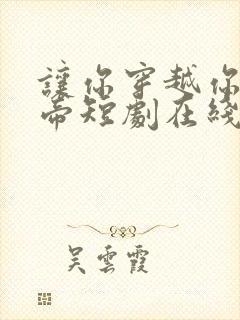 讓你穿越你
帝短劇在綫
吳雲霞